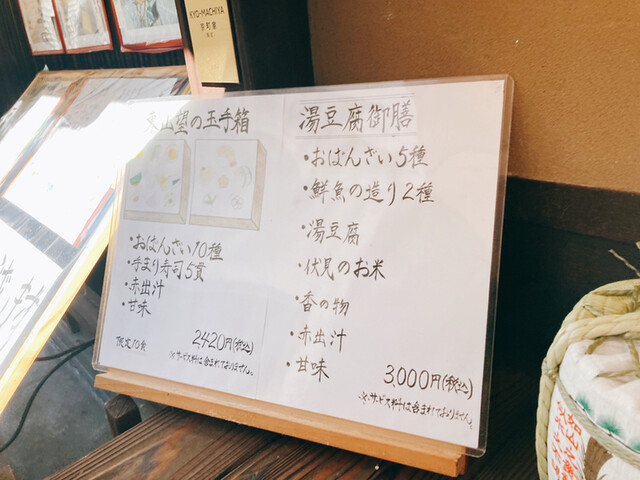 KYO-MACHIYA
京町家
山望の玉手箱
・おばんざい10種
・手まり寿司5貢
・赤出汁
・甘味
限定10食
2,420円(税込)
※サービス料は含まれておりません。
湯豆腐御膳
・おばんざい5種
・鮮魚の造り2種
・湯豆腐
・伏見のお米
・香の物
・赤出汁
・甘味
3,000円(税込)
※サービス料は含まれておりません。